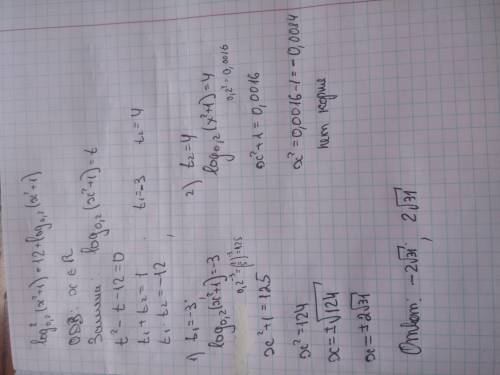 log²₀,₂(x²+1)=12+log₀,₂(x²+1)
ОДЗ: x ∈ R
Замена: log₀,₂(x²+1)=t
t²-t-12=0
t₁+t₂=1, t₁=-3 t₂=4
t₁·t₂=-12,
1) t₁=-3
log₀,₂(x²+1)=-3
0,2⁻³=(1/5)⁻³=125
x²+1=125
x²=124
x=±√124
x=±2√31
2) t₂=4
log₀,₂(x²+1)=4
0,2⁴=0,0016
x²+1=0,0016
x²=0,0016-1=-0,9984
нет корня
Ответ: -2√31; 2√31